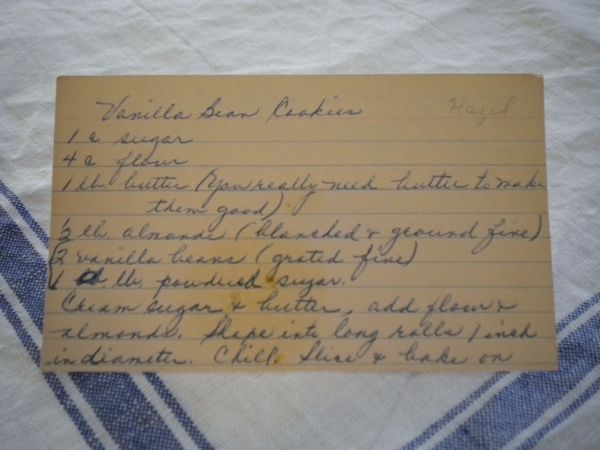 Vanilla Bean Cookies Hazel
1 c sugar
4 c flour
1 lb. butter (You really need butter to make
them good)
1/2 lb. almonds (blanched & ground fine)
2 vanilla beans (grated fine)
1 lb. powdered sugar.
Cream sugar & butter, add flour &
almonds. Shape into long rolls 1 inch
in diameter. Chill. Slice & bake on